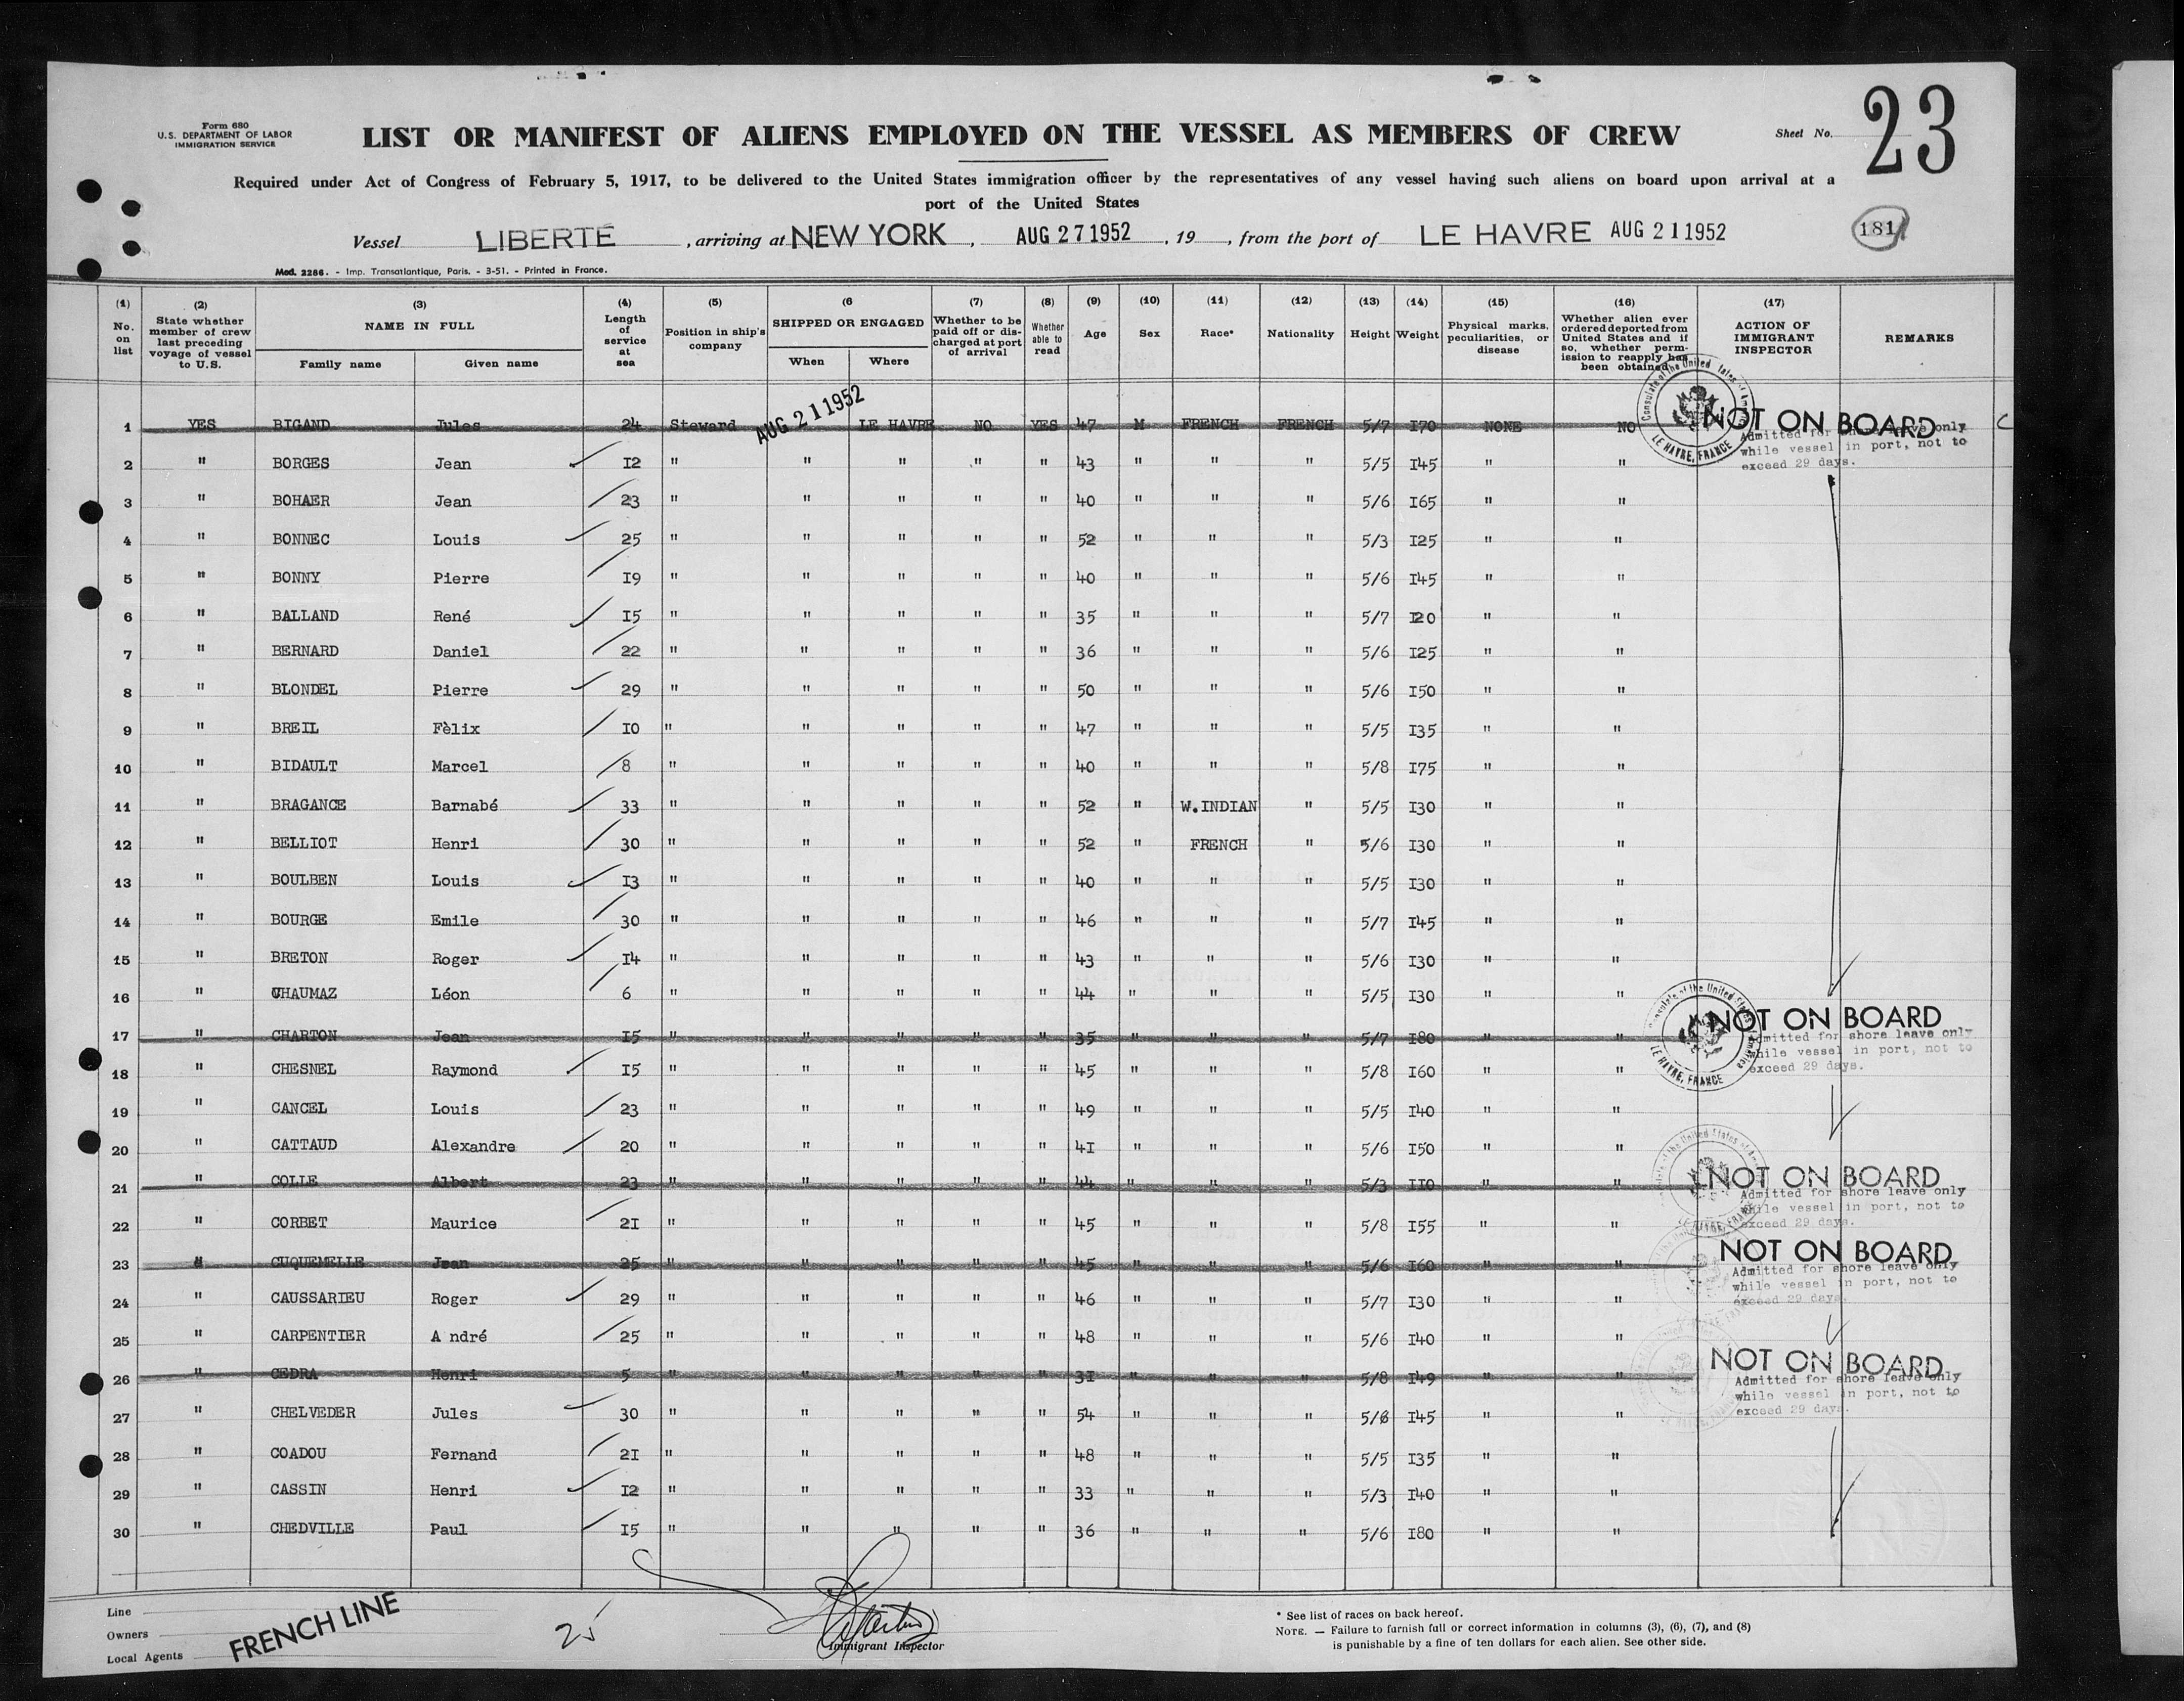 Form 680
U.S. DEPARTMENT OF LABOR
IMMIGRATION SERVICE
LIST OR MANIFEST OF ALIENS EMPLOYED ON THE VESSEL AS MEMBERS OF CREW
Sheet No. 23
Required under Act of Congress of February 5, 1917, to be delivered to the United States immigration officer by the representatives of any vessel having such aliens on board upon arrival at a
port of the United States
Vessel LIBERTE , arriving at NEW YORK , AUG 27 1952 , 19 , from the port of LE HAVRE AUG 21 1952
181
Mod. 2286. - Imp. Transatlantique, Paris. - 3-51. - Printed in France.
(1) No. on list
(2) State whether member of crew last preceding voyage of vessel to U.S.
(3) NAME IN FULL Family name Given name
(4) Length of service at sea
(5) Position in ship's company
(6 SHIPPED OR ENGAGED When Where
(7) Whether to be paid off or discharged at port of arrival
(8) Whether able to read
(9) Age
(10) Sex
(11) Race*
(12) Nationality
(13) Height
(14) Weight
(15) Physical marks, peculiarities, or disease
(16) Whether alien ever ordered deported from United States and if so, whether permission to reapply has been obtained
(17) ACTION OF IMMIGRANT INSPECTOR
REMARKS
1 YES BIGAND Jules 24 Steward AUG 21 1952 LE HAVRE NO YES 47 M FRENCH FRENCH 5/7 I70 NONE NO NOT ON BOARD
Admitted for shore leave only
while vessel in port, not to
exceed 29 days.
2 " BORGES Jean I2 " " " " " 43 " " " 5/5 I45 " "
3 " BOHAER Jean 23 " " " " " 40 " " " 5/6 I65 " "
4 " BONNEC Louis 25 " " " " " 52 " " " 5/3 I25 " "
5 " BONNY Pierre I9 " " " " " 40 " " " 5/6 I45 " "
6 " BALLAND René I5 " " " " " 35 " " " 5/7 I20 " "
7 " BERNARD Daniel 22 " " " " " 36 " " " 5/6 I25 " "
8 " BLONDEL Pierre 29 " " " " " 50 " " " 5/6 I50 " "
9 " BREIL Fèlix I0 " " " " " 47 " " " 5/5 I35 " "
10 " BIDAULT Marcel 8 " " " " " 40 " " " 5/8 I75 " "
11 " BRAGANCE Barnabé 33 " " " " " 52 " W.INDIAN " 5/5 I30 " "
12 " BELLIOT Henri 30 " " " " " 52 " FRENCH " 5/6 I30 " "
13 " BOULBEN Louis I3 " " " " " 40 " " " 5/5 I30 " "
14 " BOURGE Emile 30 " " " " " 46 " " " 5/7 I45 " "
15 " BRETON Roger I4 " " " " " 43 " " " 5/6 I30 " "
16 " CHAUMAZ Léon 6 " " " " " 44 " " " 5/5 I30 " "
17 " CHARTON Jean I5 " " " " " 35 " " " 5/7 I80 " " NOT ON BOARD
Admitted for shore leave only
while vessel in port, not to
exceed 29 days.
18 " CHESNEL Raymond I5 " " " " " 45 " " " 5/8 I60 " "
19 " CANCEL Louis 23 " " " " " 49 " " " 5/5 I40 " "
20 " CATTAUD Alexandre 20 " " " " " 4I " " " 5/6 I50 " "
21 " COLLE Albert 23 " " " " " 44 " " " 5/3 II0 " " NOT ON BOARD
Admitted for shore leave only
while vessel in port, not to
exceed 29 days.
22 " CORBET Maurice 2I " " " " " 45 " " " 5/8 I55 " "
23 " CUQUEMELLE Jean 25 " " " " " 45 " " " 5/6 I60 " " NOT ON BOARD
Admitted for shore leave only
while vessel in port, not to
exceed 29 days.
24 " CAUSSARIEU Roger 29 " " " " " 46 " " " 5/7 I30 " "
25 " CARPENTIER A ndré 25 " " " " " 48 " " " 5/6 I40 " "
26 " CEDRA Henri 5 " " " " " 3I " " " 5/8 I49 " " NOT ON BOARD
Admitted for shore leave only
while vessel in port, not to
exceed 29 days.
27 " CHELVEDER Jules 30 " " " " " 54 " " " 5/6 I45 " "
28 " COADOU Fernand 2I " " " " " 48 " " " 5/5 I35 " "
29 " CASSIN Henri I2 " " " " " 33 " " " 5/3 I40 " "
30 " CHEDVILLE Paul I5 " " " " " 36 " " " 5/6 I80 " "
Consulate of the United States of America
LE HAVRE, FRANCE
Line
Owners
Local Agents
FRENCH LINE
25
Immigrant Inspector
* See list of races on back hereof.
NOTE. — Failure to furnish full or correct information in columns (3), (6), (7), and (8)
is punishable by a fine of ten dollars for each alien. See other side.